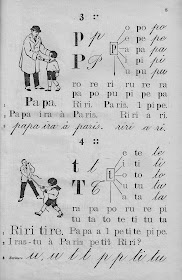 3 ::
o po po
P p e pe pe
a pa pa
P P u pu pu
i pi pi
ro re ri ru ra
pa po pu pi pe
Papa, Riri. Paris. 1 pipe.
Papa ira à Paris. Riri a ri.
papa ira à paris. riri a ri.
4 ::
e te te
t t o to to
i ti ti
T T a ta ta
u tu tu
pa ru ra re pi
tu ta to te ti tu ta
Riri tire. Papa a 1 petite pipe.
Iras-tu à Paris petit Riri?
u u t t p p ti tu